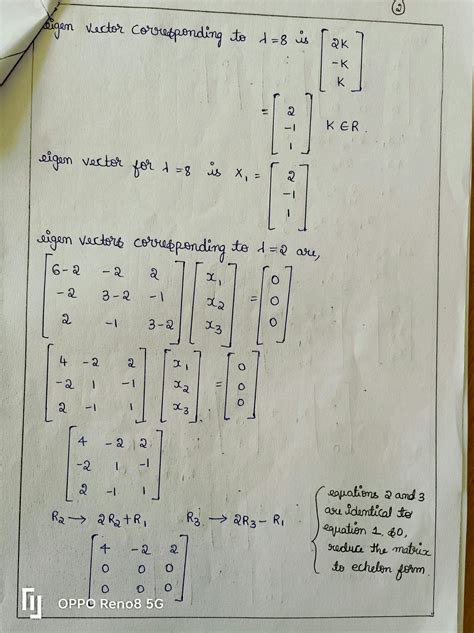 2
eigen vector corresponding to λ=8 is [2K
-K
K]
= [2
-1
1] K ∈ R.
eigen vector for λ=8 is X₁ = [2
-1
1]
eigen vectors corresponding to λ=2 are,
[6-2 -2 2
-2 3-2 -1
2 -1 3-2] [x₁
x₂
x₃] = [0
0
0]
[4 -2 2
-2 1 -1
2 -1 1] [x₁
x₂
x₃] = [0
0
0]
[4 -2 2
-2 1 -1
2 -1 1]
R₂ → 2R₂ + R₁ R₃ → 2R₃ - R₁
[4 -2 2
0 0 0
0 0 0]
{equations 2 and 3
are identical to
equation 1, so,
reduce the matrix
to echelon form.
OPPO Reno8 5G